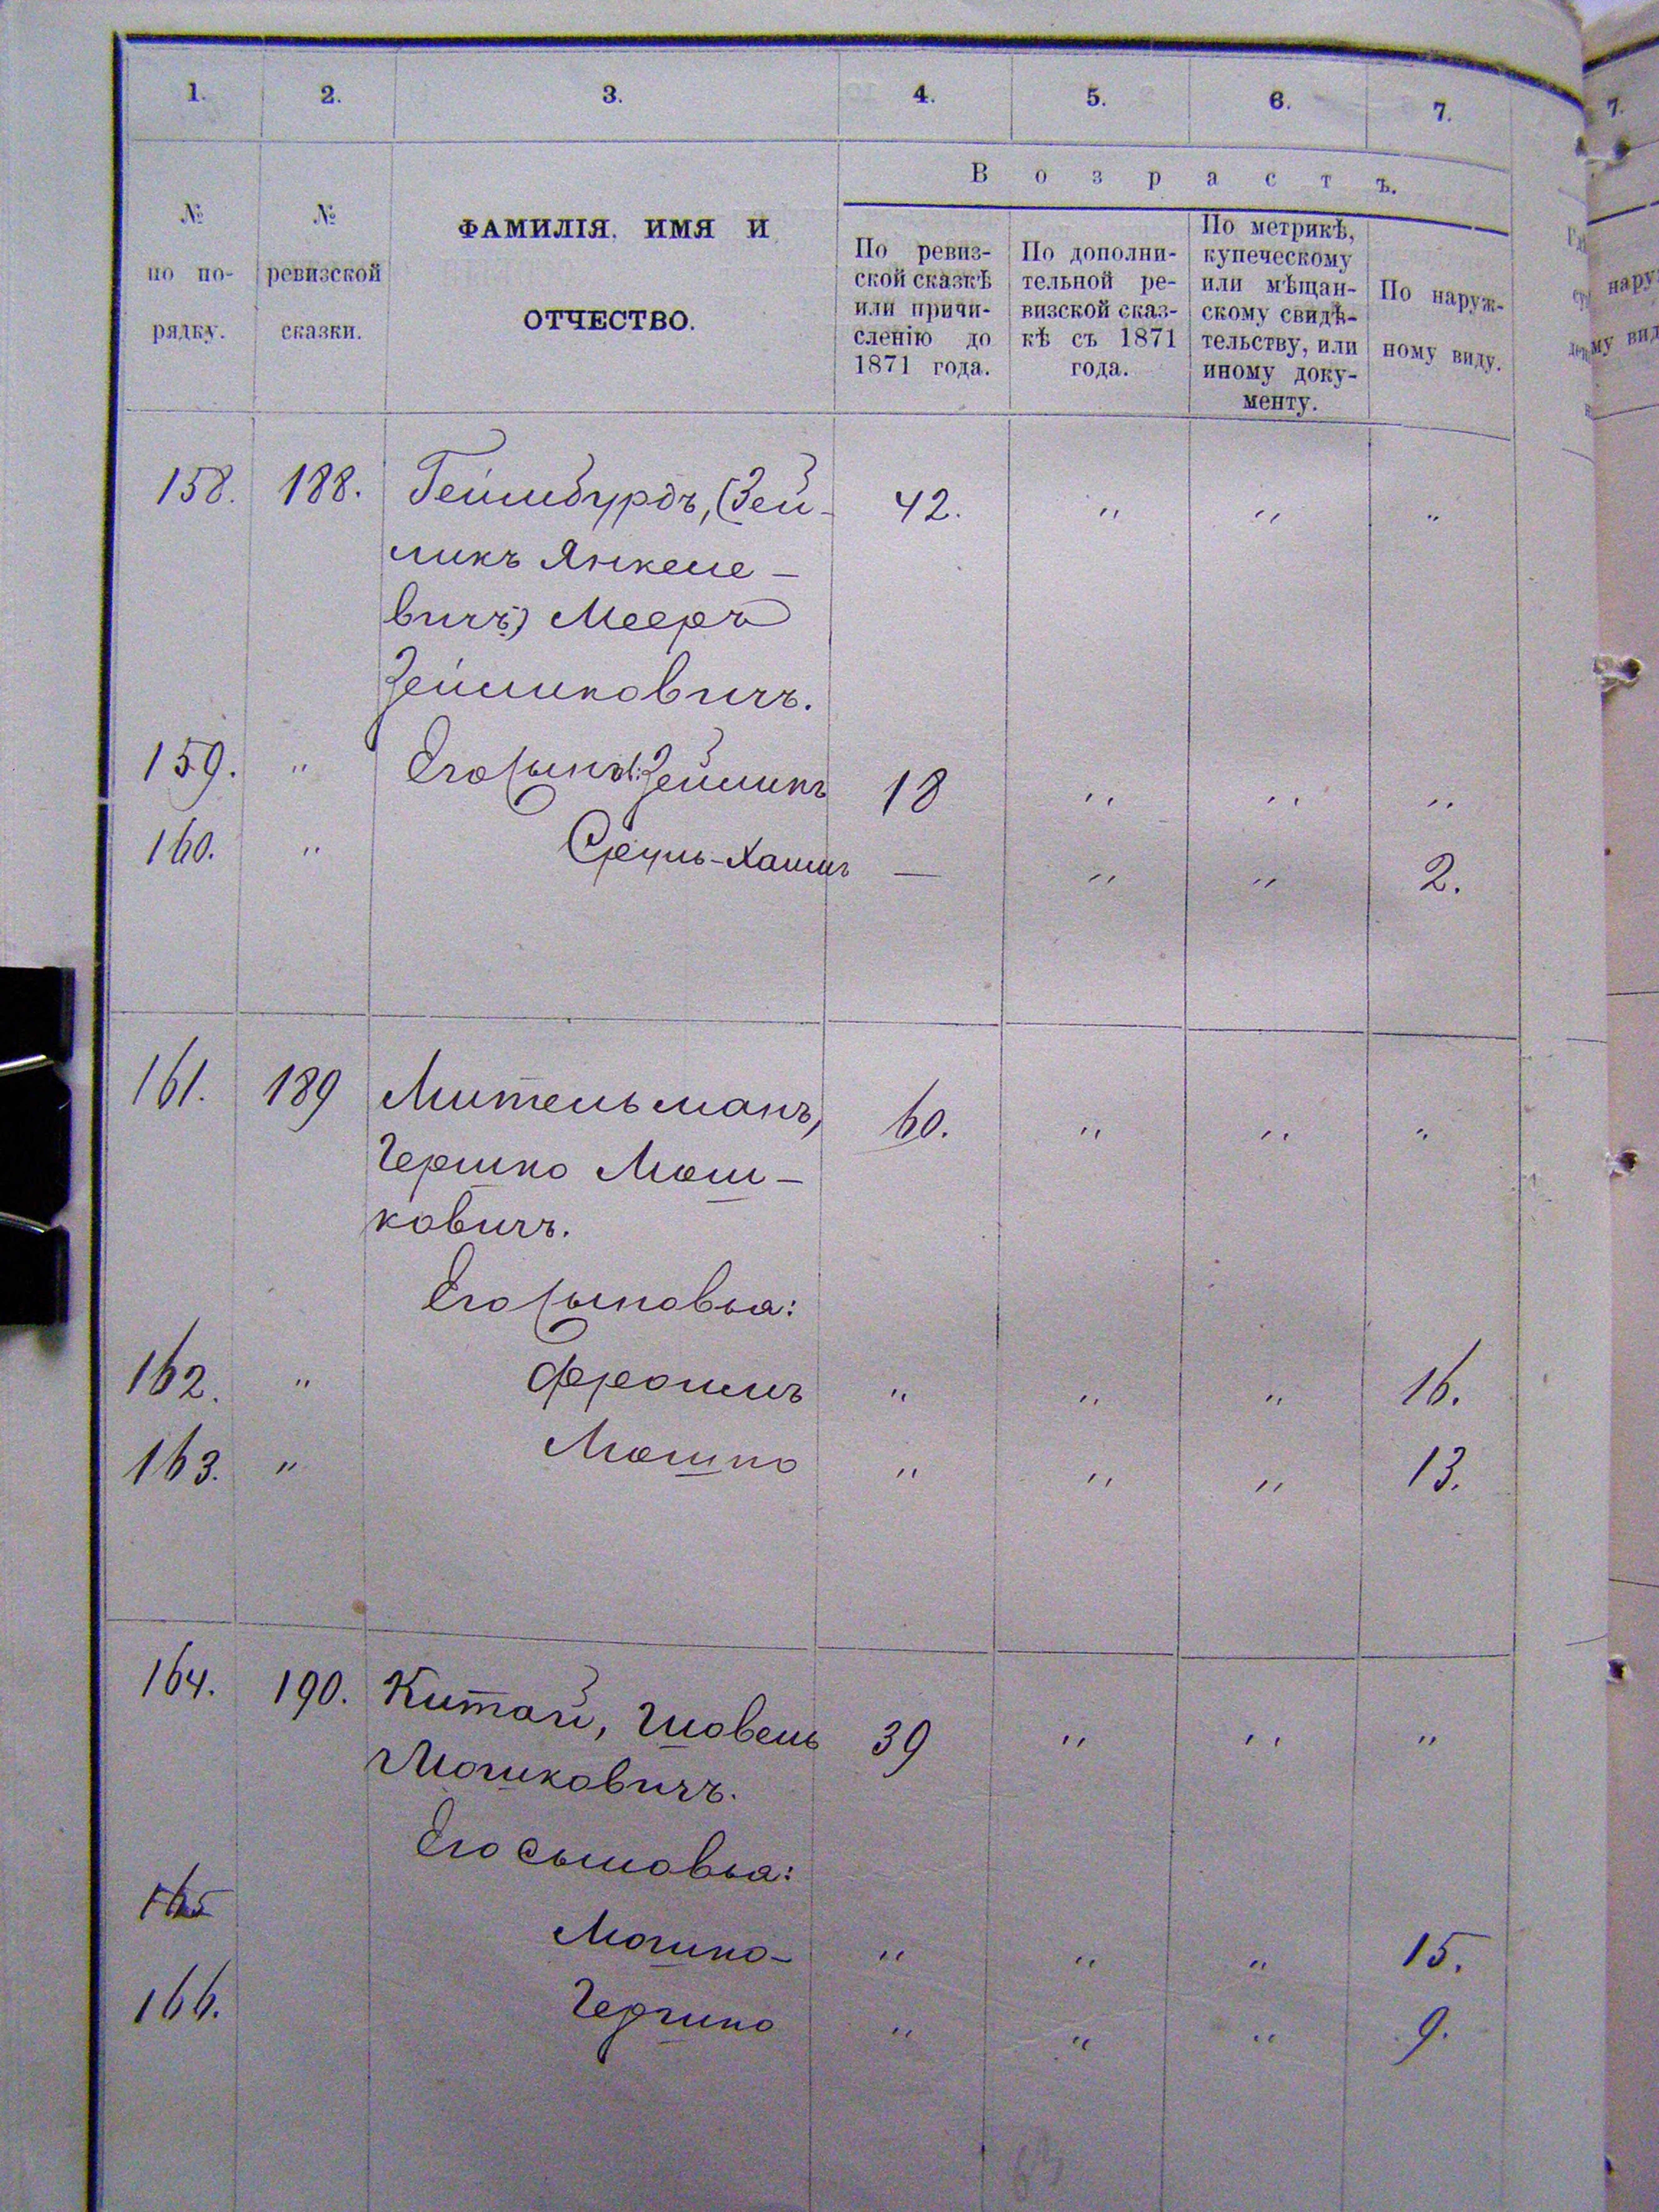 1. 2. 3. 4. 5. 6. 7.
В о з р а с т ъ.
№ по по-рядку.
№ ревизской сказки.
ФАМИЛІЯ, ИМЯ И
ОТЧЕСТВО.
По ревиз-
ской сказкѣ
или причи-
сленію до
1871 года.
По дополни-
тельной ре-
визской сказ-
кѣ съ 1871
года.
По метрикѣ,
купеческому
или мѣщан-
скому свидѣ-
тельству, или
иному доку-
менту.
По наруж-
ному виду.
158. 188. Геймбурдъ, (Зей- 42. " " "
ликъ Янкеле-
вичъ) Мееръ
Зейликовичъ.
159. " Его сынъ: Зейликъ 18 " " "
160. " Сруль-Хаимъ — " " 2.
161. 189 Мительманъ, 60. " " "
Гершко Мош-
ковичъ.
Его сыновья:
162. " Фроимъ " " " 16.
163. " Мошко " " " 13.
164. 190. Китай, Шовель 39 " " "
Мошковичъ.
Его сыновья:
165 Мошко- " " " 15.
166. Гершко " " " 9.
63